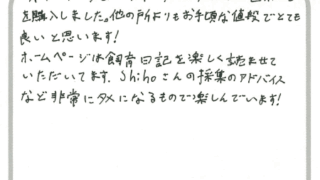 を購入しました。他の所よりもお手頃な値段でとても
良いと思います!
ホームページは飼育日記を楽しく読ませて
いただいてます。Shihoさんの採集のアドバイス
など非常にタメになるもので楽しんでいます!